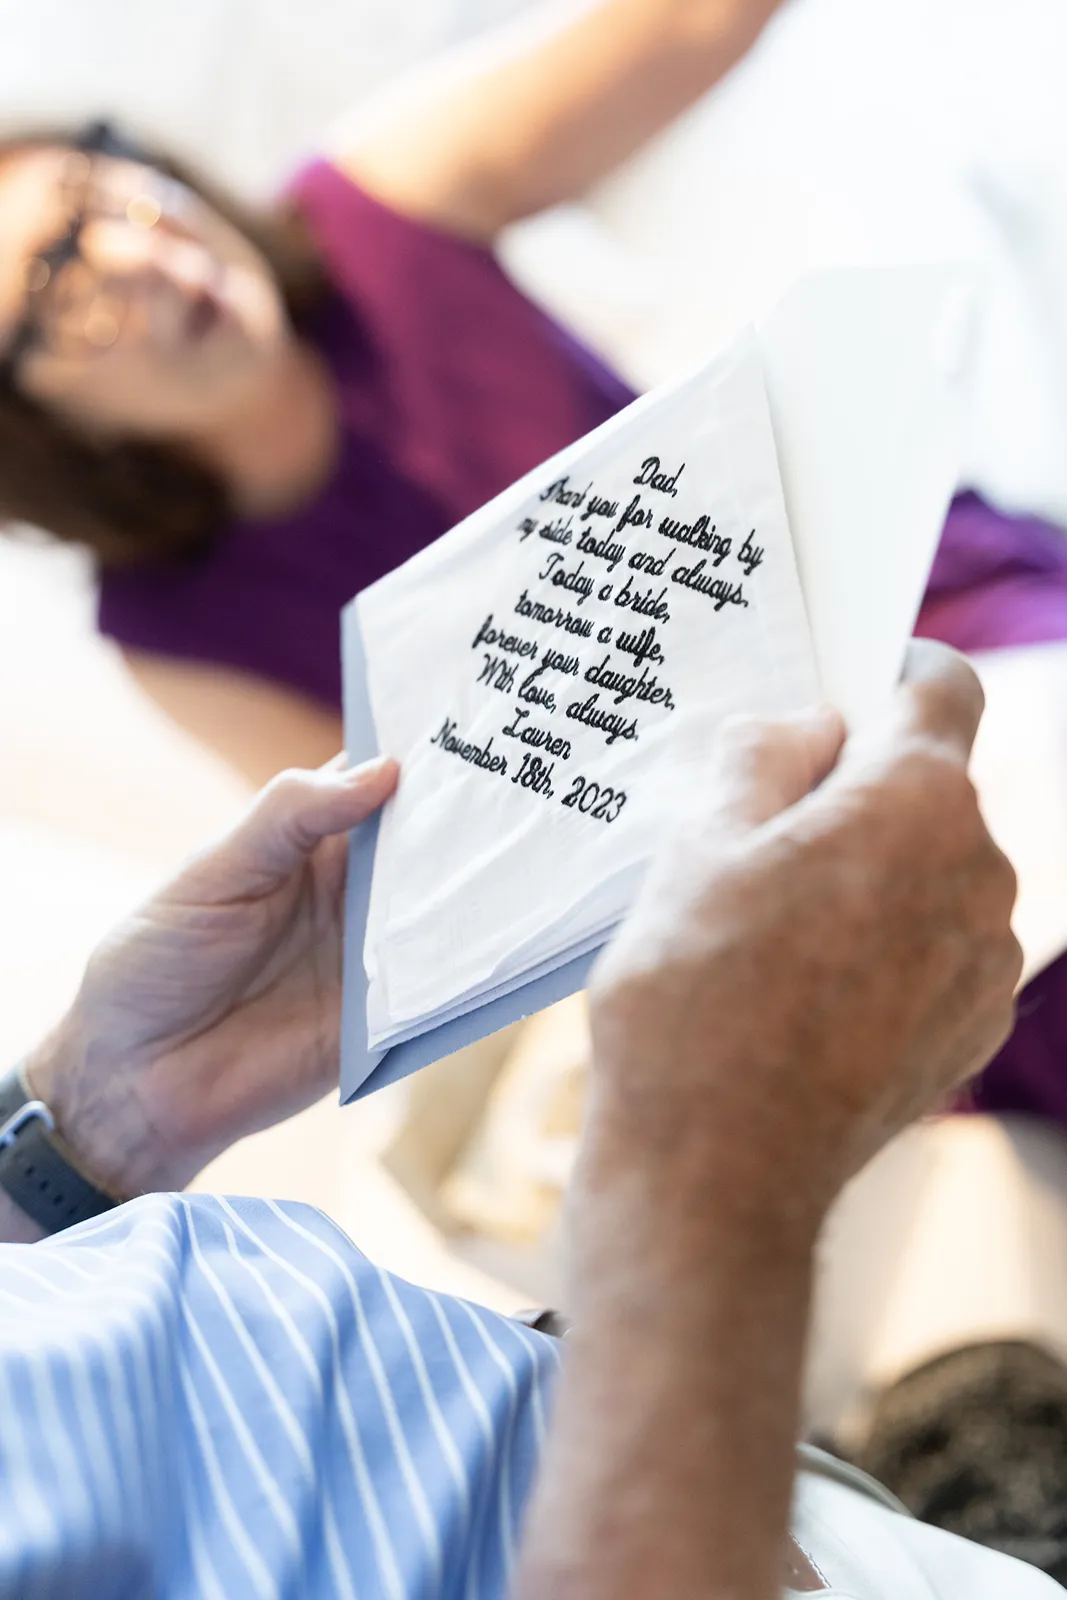 Dad,
Thank you for walking by
my side today and always.
Today a bride,
tomorrow a wife,
forever your daughter.
With love, always.
Lauren
November 18th, 2023